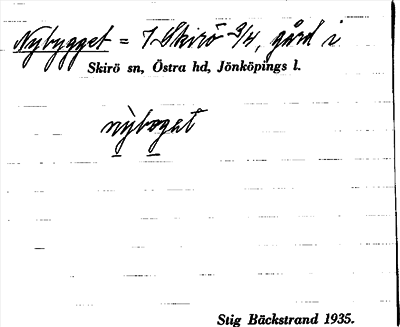 Nybygget = 1 Skirö 3/4, gård i
Skirö sn, Östra hd, Jönköpings l.
nỳbogət
Stig Bäckstrand 1935.